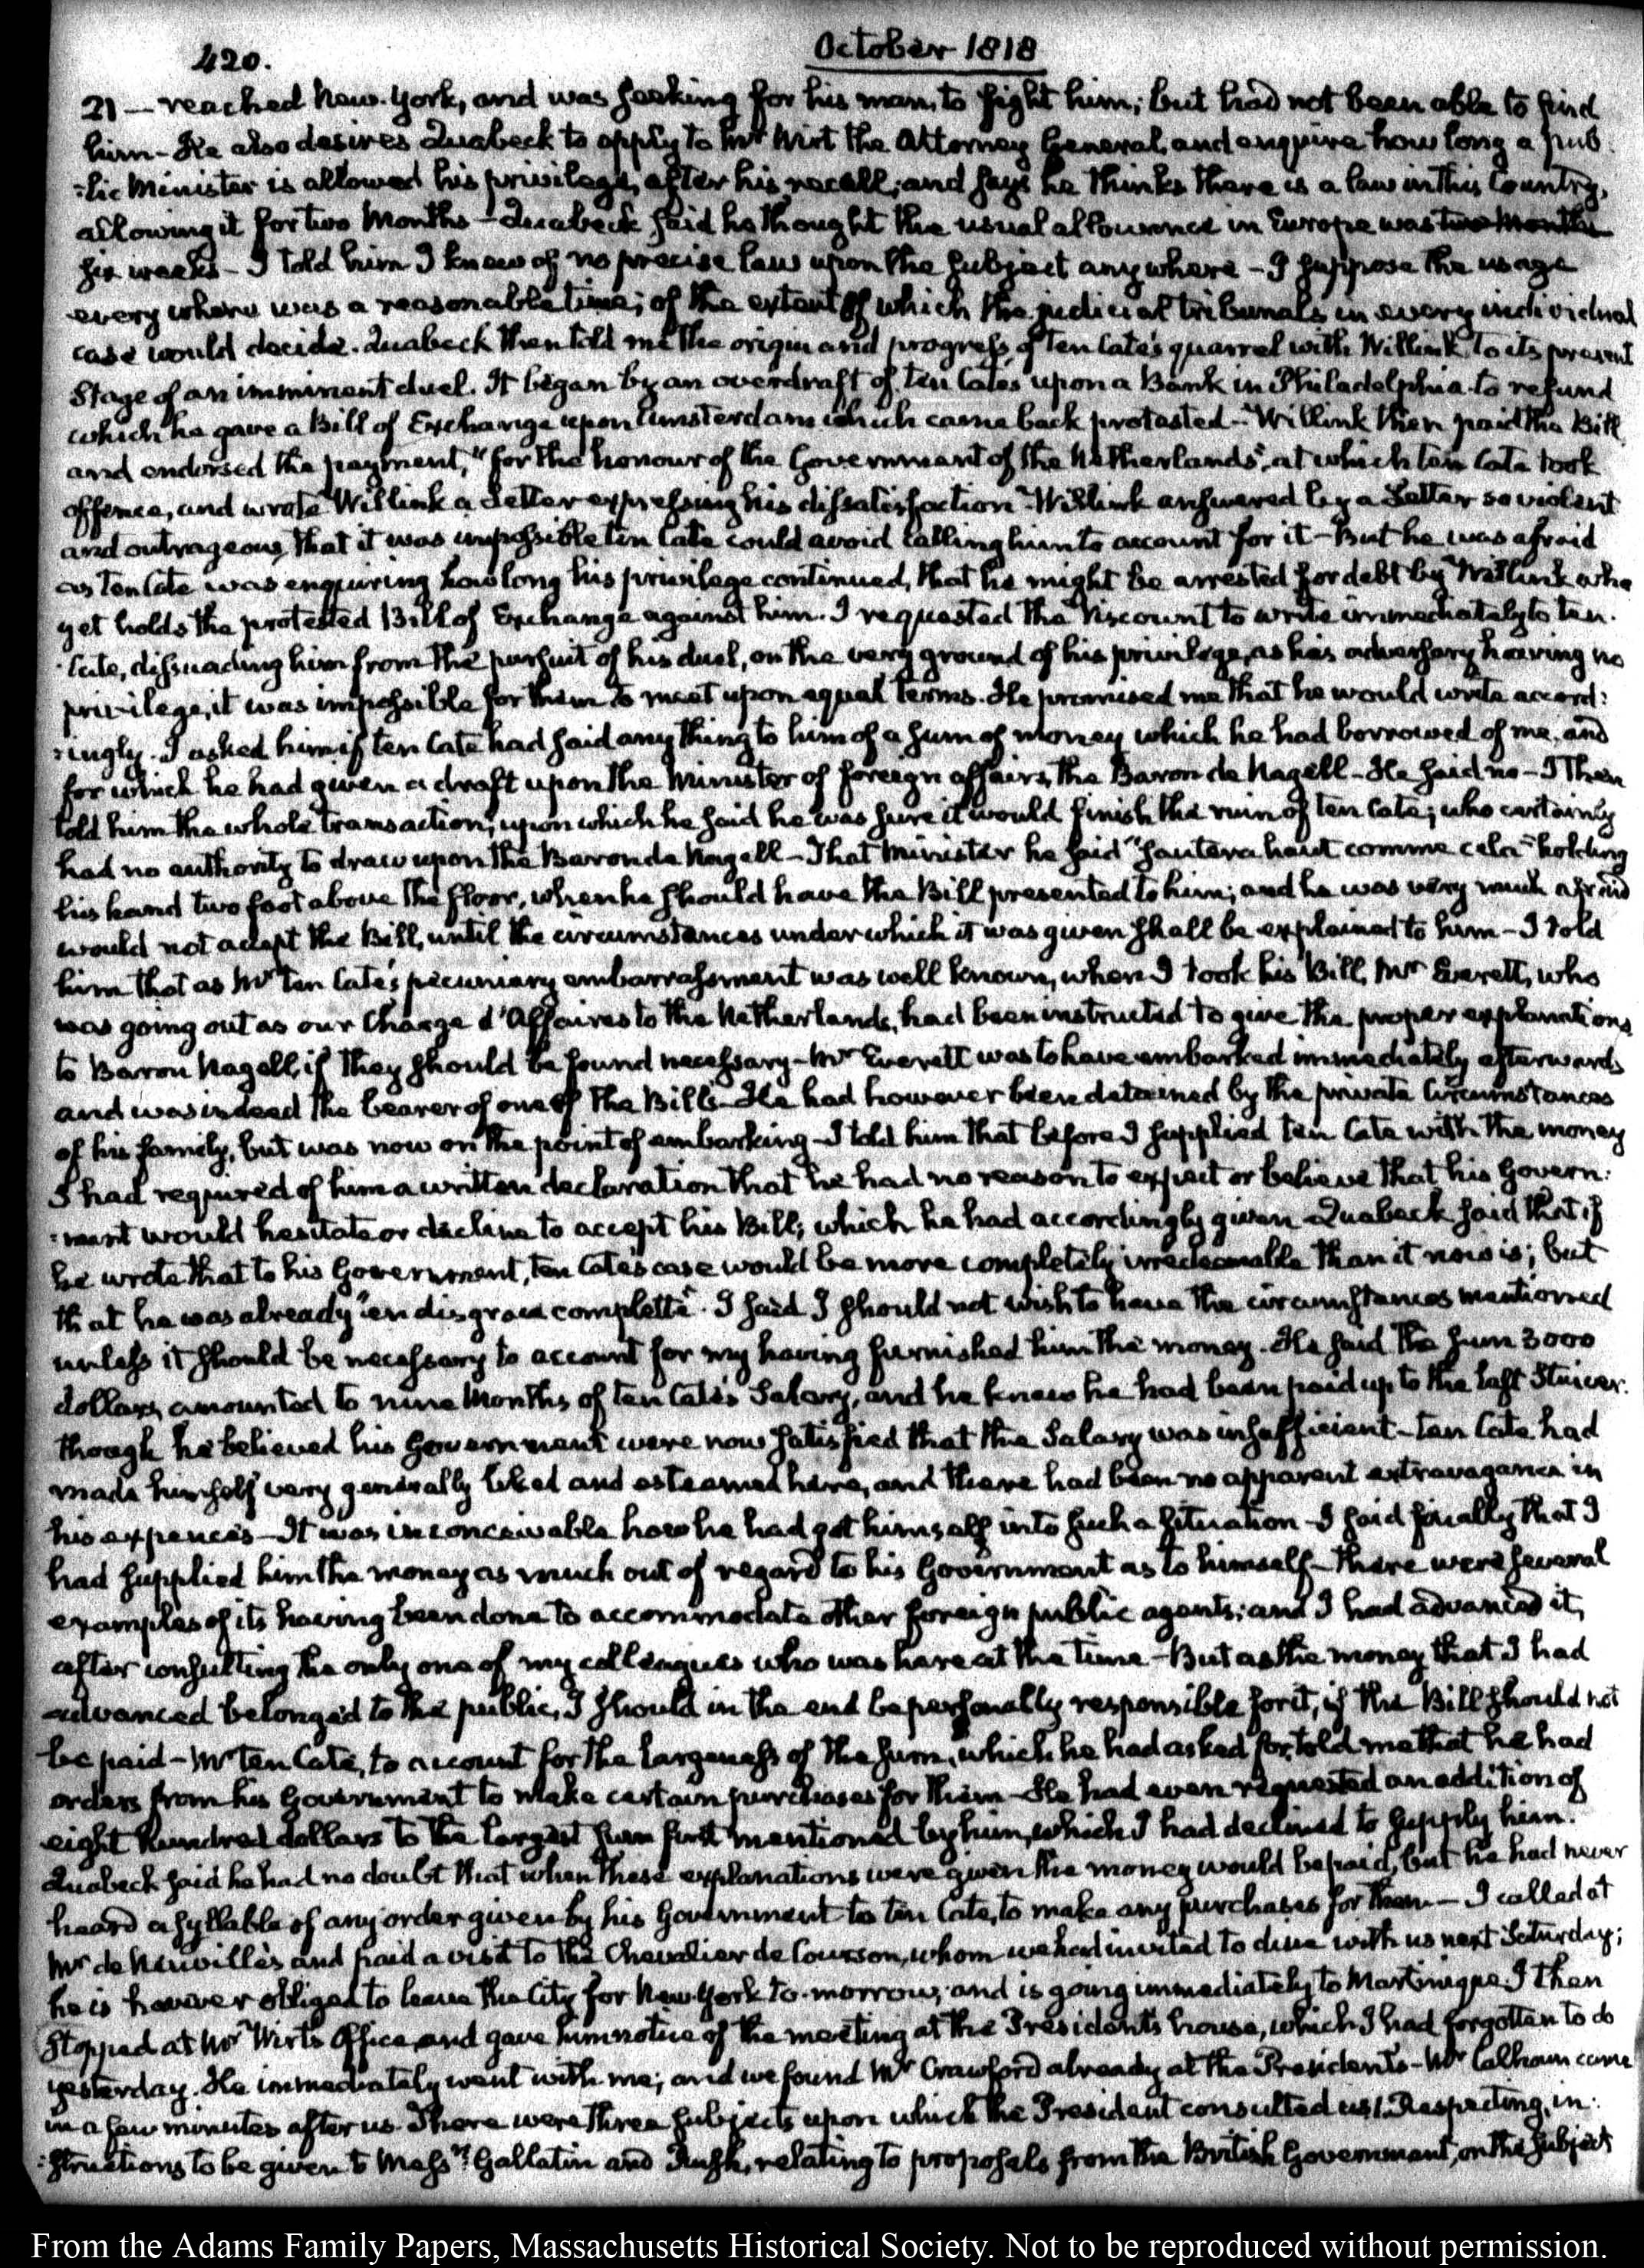 420.
October 1818
21 — reached New-York, and was seeking for his man, to fight him; but had not been able to find
him - He also desires Quabeck to apply to Mr Wirt the Attorney General, and enquire how long a pub
:lic Minister is allowed his privilege, after his recall; and says he thinks there is a law in this Country,
allowing it for two Months - Quabeck said he thought the usual allowance in Europe was two Months
six weeks - I told him I knew of no precise law upon the subject any where - I suppose the usage
every where was a reasonable time; of the extent of which the judicial tribunals in every individual
case would decide. Quabeck then told me the origin and progress of ten Cate's quarrel with Willink to its present
Stage of an imminent duel. It began by an overdraft of ten Cate's upon a Bank in Philadelphia to refund
which he gave a Bill of Exchange upon Amsterdam which came back protested - Willink then paid the Bill
and endorsed the payment, "for the honour of the Government of the Netherlands", at which ten Cate took
offence, and wrote Willink a Letter expressing his dissatisfaction - Willink answered by a Letter so violent
and outrageous, that it was impossible ten Cate could avoid calling him to account for it - But he was afraid
as ten Cate was enquiring how long his privilege continued, that he might be arrested for debt by Willink who
yet holds the protested Bill of Exchange against him. I requested the Viscount to write immediately to ten.
Cate, dissuading him from the pursuit of his duel, on the very ground of his privilege, as his adversary having no
privilege, it was impossible for them to meet upon equal terms. He promised me that he would write accord:
:ingly. I asked him if ten Cate had said any thing to him of a sum of money which he had borrowed of me, and
for which he had given a draft upon the Minister of foreign affairs, the Baron de Nagell - He said no - I then
told him the whole transaction; upon which he said he was sure it would finish the ruin of ten Cate; who certainly
had no authority to draw upon the Baron de Nagell - That Minister he said "sautera haut comme cela" holding
his hand two foot above the floor, when he should have the Bill presented to him; and he was very much afraid
would not accept the Bill, until the circumstances under which it was given shall be explained to him - I told
him that as Mr ten Cate's pecuniary embarrassment was well known, when I took his Bill, Mr Everett, who
was going out as our Charge d'Affaires to the Netherlands, had been instructed to give the proper explanations
to Baron Nagell, if they should be found necessary - Mr Everett was to have embarked immediately afterwards
and was indeed the bearer of one of the Bills - He had however been detained by the private Circumstances
of his family, but was now on the point of embarking - I told him that before I supplied ten Cate with the money
I had required of him a written declaration that he had no reason to expect or believe that his Govern:
:ment would hesitate or decline to accept his Bill; which he had accordingly given - Quabeck said that if
he wrote that to his Government, ten Cate's case would be more completely irredeemable than it now is; but
that he was already "en disgrace complette". I said I should not wish to have the circumstances mentioned
unless it should be necessary to account for my having furnished him the money. He said the sum 3000
dollars, amounted to nine Months of ten Cate's Salary, and he knew he had been paid up to the last Stuiver.
though he believed his Government were now satisfied that the Salary was insufficient - ten Cate had
made himself very generally liked and esteemed here, and there had been no apparent extravagance in
his expences - It was inconceivable how he had got himself into such a situation - I said finally that I
had supplied him the money as much out of regard to his Government as to himself - there were several
examples of its having been done to accommodate other foreign public agents; and I had advanced it,
after consulting the only one of my colleagues who was here at the time - But as the money that I had
advanced belonged to the public, I should in the end be personally responsible for it, if the Bill should not
be paid - Mr ten Cate, to account for the largeness of the sum, which he had asked for, told me that he had
orders from his Government to make certain purchases for them - He had even requested an addition of
eight hundred dollars to the largest sum first mentioned by him, which I had declined to supply him.
Quabeck said he had no doubt that when these explanations were given the money would be paid, but he had never
heard a syllable of any order given by his Government to ten Cate, to make any purchases for them - I called at
Mr de Neuville's and paid a visit to the Chevalier de Courson, whom we had invited to dine with us next Saturday;
he is however obliged to leave the City for New-York to-morrow, and is going immediately to Martinique. I then
stopped at Mr Wirt's Office and gave him notice of the meeting at the President's house, which I had forgotten to do
yesterday. He immediately went with me; and we found Mr Crawford already at the President's - Mr Calhoun came
in a few minutes after us. There were three subjects upon which the President consulted us 1. Respecting, in:
:structions to be given to Messrs Gallatin and Rush, relating to proposals from the British Government, on the subject
From the Adams Family Papers, Massachusetts Historical Society. Not to be reproduced without permission.